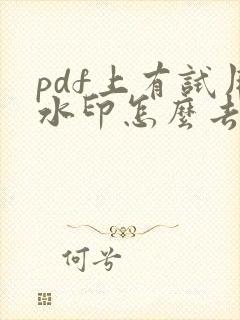 pdf上有試用
水印怎麼去
何兮